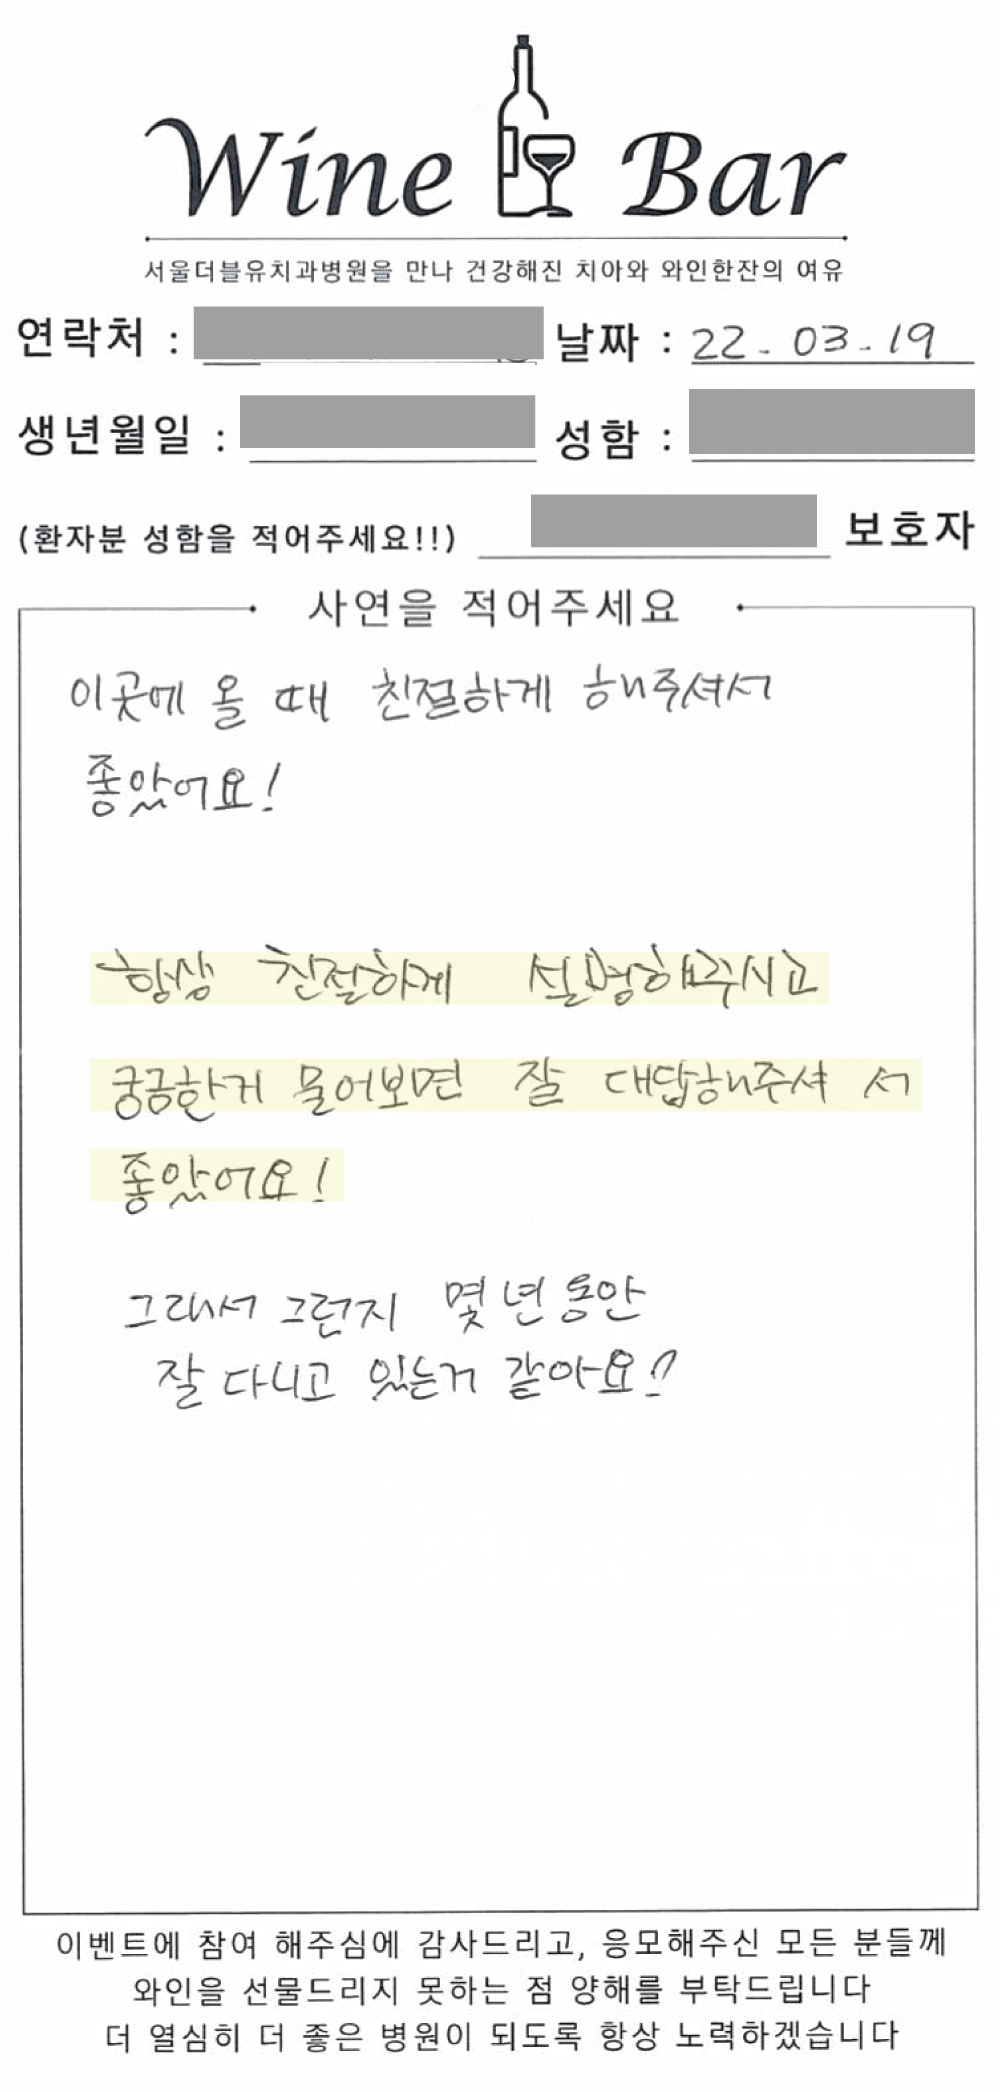 Wine Bar
서울더블유치과병원을 만나 건강해진 치아와 와인한잔의 여유
연락처 : 날짜 : 22. 03. 19
생년월일 : 성함 :
(환자분 성함을 적어주세요!!) 보호자
사연을 적어주세요
이곳에 올 때 친절하게 해주셔서
좋았어요!
항상 친절하게 설명해주시고
궁금한거 물어보면 잘 대답해주셔 서
좋았어요!
그래서 그런지 몇 년 동안
잘 다니고 있는거 같아요!!
이벤트에 참여 해주심에 감사드리고, 응모해주신 모든 분들께
와인을 선물드리지 못하는 점 양해를 부탁드립니다
더 열심히 더 좋은 병원이 되도록 항상 노력하겠습니다